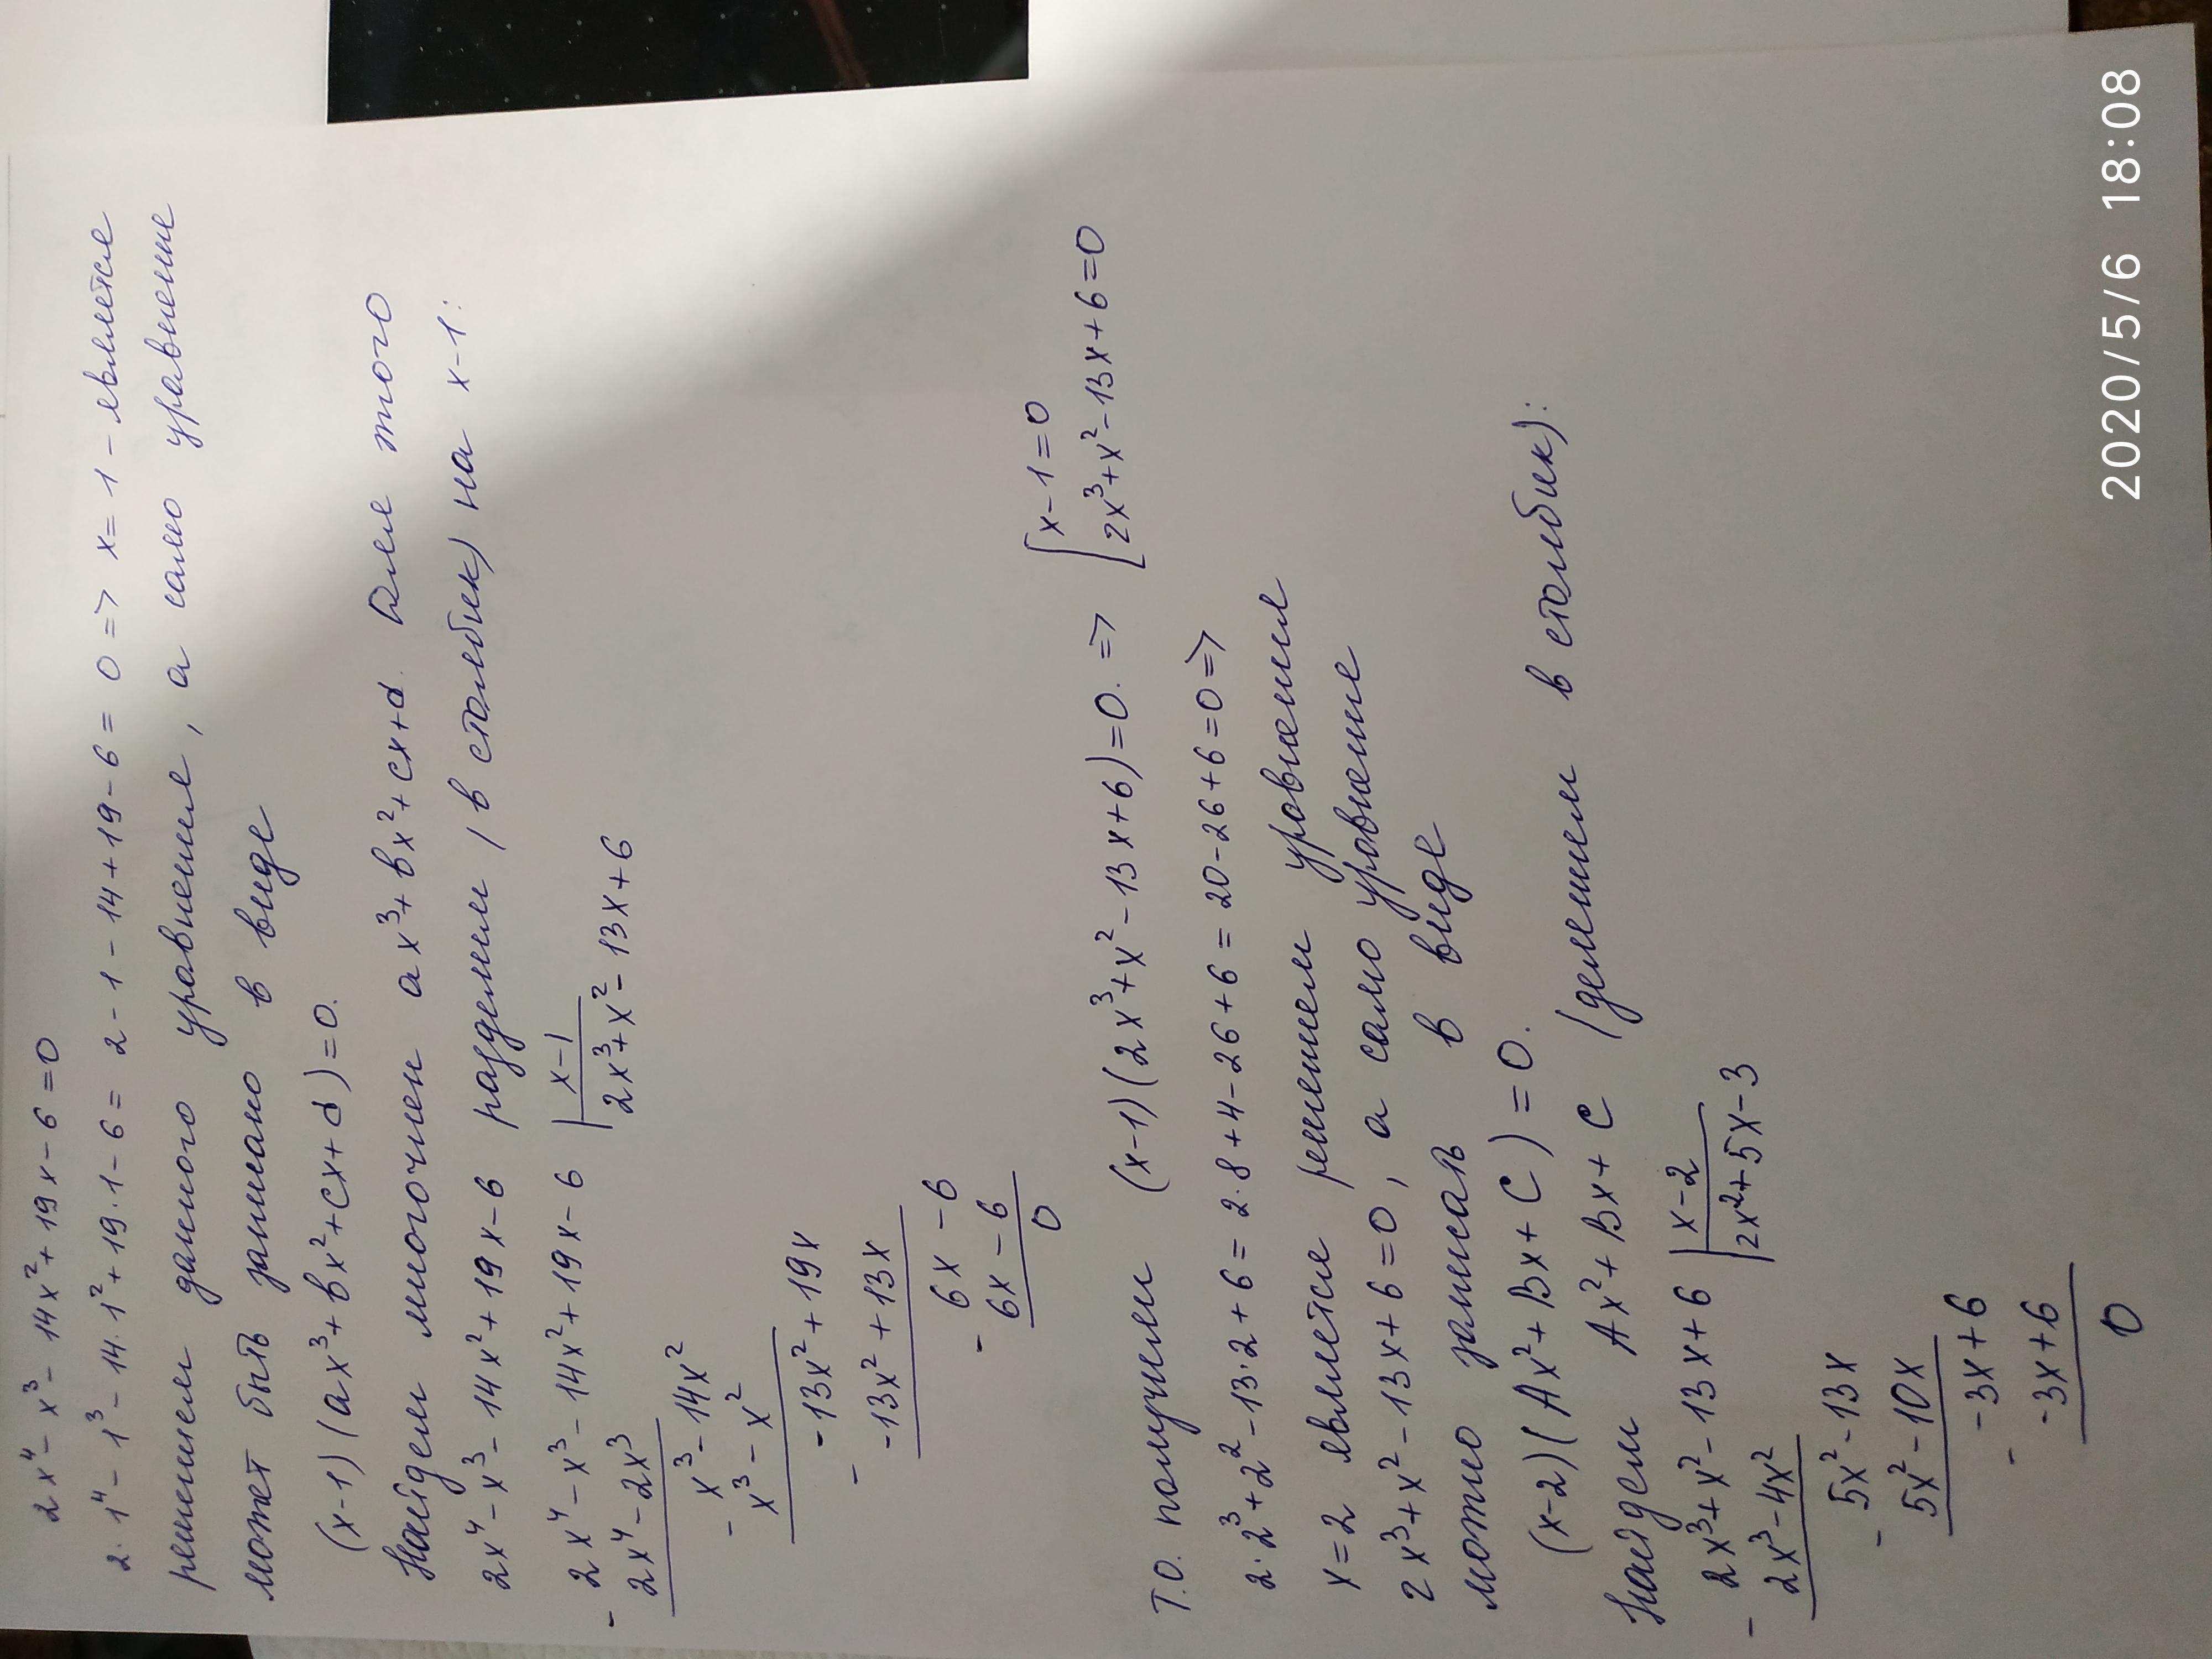 2x⁴ - x³ - 14x² + 19x - 6 = 0
2·1⁴ - 1³ - 14·1² + 19·1 - 6 = 2 - 1 - 14 + 19 - 6 = 0 => x = 1 - является
решением данного уравнения, а само уравнение
может быть записано в виде
(x-1)(ax³ + bx² + cx + d) = 0.
Найдем многочлен ax³ + bx² + cx + d. Для этого
2x⁴ - x³ - 14x² + 19x - 6 разделим (в столбик) на x-1:
- 2x⁴ - x³ - 14x² + 19x - 6 | x-1
2x⁴ - 2x³ 2x³ + x² - 13x + 6
- x³ - 14x²
x³ - x²
- -13x² + 19x
-13x² + 13x
- 6x - 6
6x - 6
0
Т.О. получили (x-1)(2x³ + x² - 13x + 6) = 0. => [ x-1 = 0
2x³ + x² - 13x + 6 = 0
2·2³ + 2² - 13·2 + 6 = 2·8 + 4 - 26 + 6 = 20 - 26 + 6 = 0 =>
x = 2 является решением уравнения
2x³ + x² - 13x + 6 = 0, а само уравнение
можно записать в виде
(x-2)(Ax² + Bx + C) = 0.
Найдем Ax² + Bx + C (делением в столбик):
- 2x³ + x² - 13x + 6 | x-2
2x³ - 4x² | 2x² + 5x - 3
- 5x² - 13x
5x² - 10x
- -3x + 6
-3x + 6
0
2020/5/6 18:08